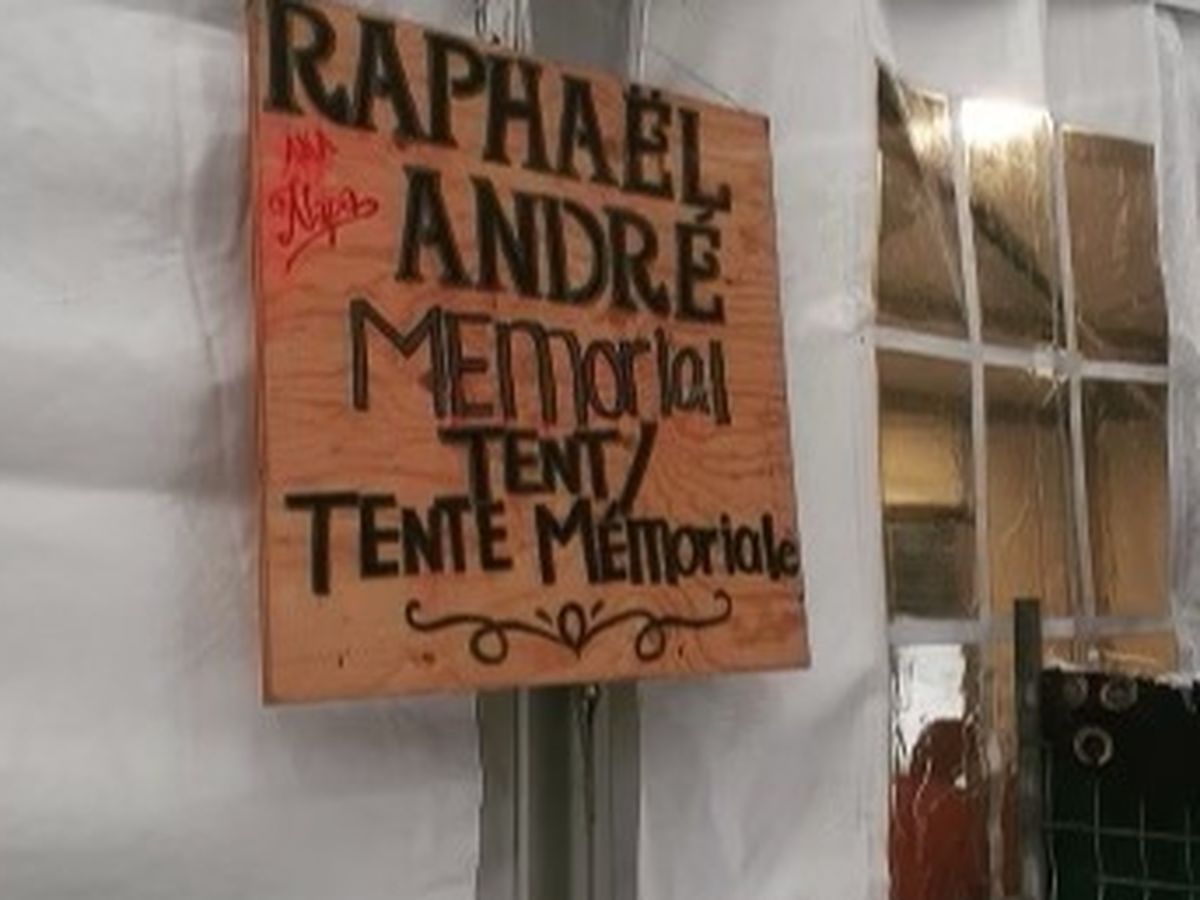 RAPHAËL
AKA
Napa
ANDRÉ
MEmorial
TENT/
TENTE MÉmoriale